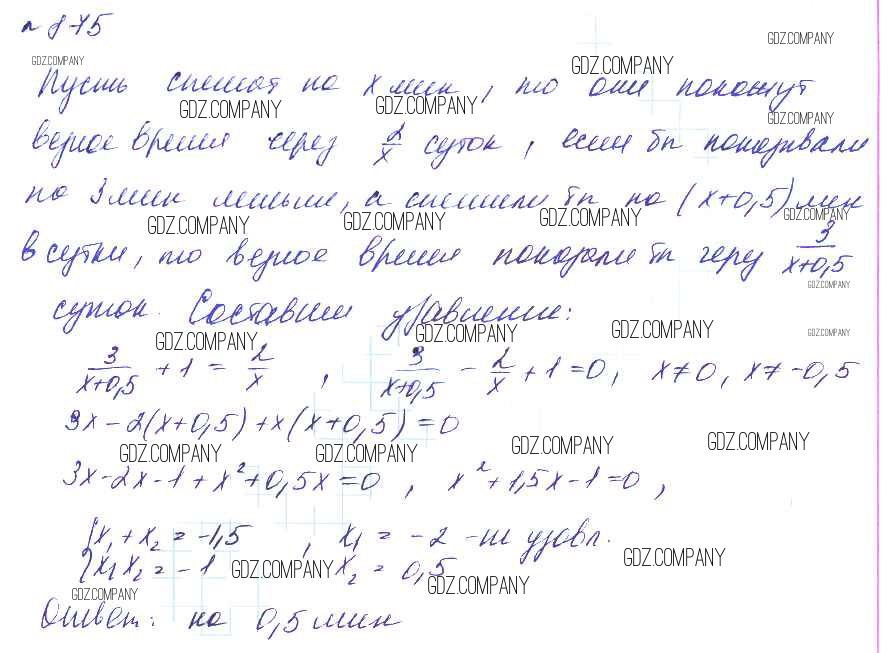 № 875
GDZ.COMPANY
GDZ.COMPANY GDZ.COMPANY
Пусть спешат на x мин, то они покажут
GDZ.COMPANY GDZ.COMPANY GDZ.COMPANY
верное время через 2/x суток, если бы показывали
на 3 мин меньше, а спешили бы на (x+0,5) мин
GDZ.COMPANY GDZ.COMPANY GDZ.COMPANY GDZ.COMPANY
в сутки, то верное время показали бы через 3/(x+0,5)
GDZ.COMPANY
суток. Составим уравнение:
GDZ.COMPANY GDZ.COMPANY GDZ.COMPANY GDZ.COMPANY
3/(x+0,5) + 1 = 2/x , 3/(x+0,5) - 2/x + 1 = 0, x ≠ 0, x ≠ -0,5
3x - 2(x+0,5) + x(x+0,5) = 0
GDZ.COMPANY GDZ.COMPANY GDZ.COMPANY GDZ.COMPANY
3x - 2x - 1 + x² + 0,5x = 0 , x² + 1,5x - 1 = 0 ,
{x₁ + x₂ = -1,5 , x₁ = -2 - не удовл.
{x₁ x₂ = -1 x₂ = 0,5
GDZ.COMPANY GDZ.COMPANY GDZ.COMPANY GDZ.COMPANY
Ответ: на 0,5 мин